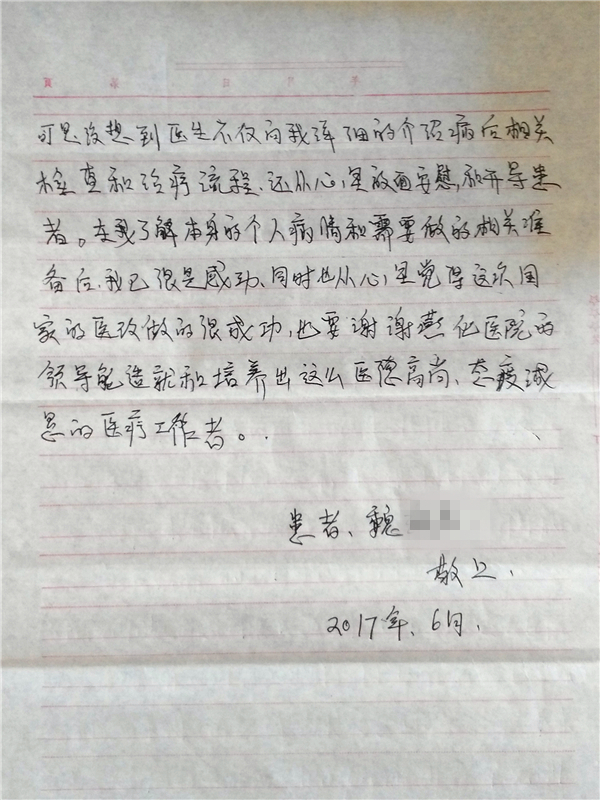 可是没想到医生不仅向我详细的介绍病后相关
检查和治疗流程、还从心里放面安慰,和开导患
者。在我了解本身的个人病情和需要做的相关准
备后、我已很是感动、同时也从心里觉得这次国
家的医改做的很成功,也要谢谢燕化医院的
领导能造就和培养出这么医德高尚、态度诚
恳的医疗工作者。
患者、魏
敬上、
2017年、6月、